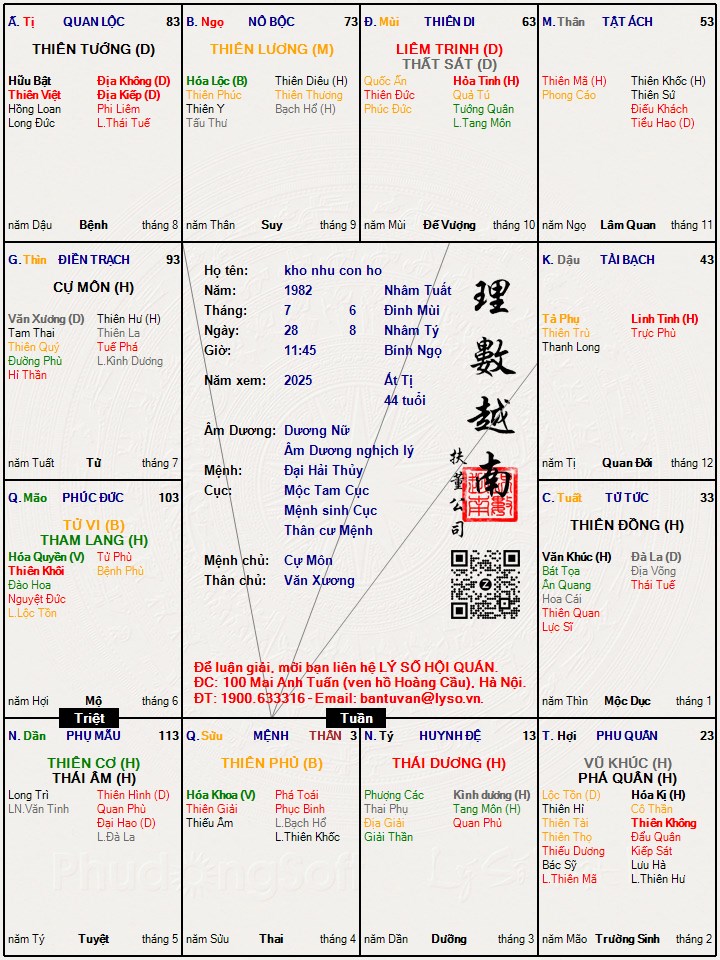 Ã. Tị QUAN LỘC 83
THIÊN TƯỚNG (D)
Hữu Bật Địa Không (D)
Thiên Việt Địa Kiếp (D)
Hồng Loan Phi Liêm
Long Đức L.Thái Tuế
năm Dậu Bệnh tháng 8
B. Ngọ NÔ BỘC 73
THIÊN LƯƠNG (M)
Hóa Lộc (B) Thiên Diêu (H)
Thiên Phúc Thiên Thương
Thiên Y Bạch Hổ (H)
Tấu Thư
năm Thân Suy tháng 9
Đ. Mùi THIÊN DI 63
LIÊM TRINH (D)
THẤT SÁT (D)
Quốc Ấn Hỏa Tinh (H)
Thiên Đức Quả Tú
Phúc Đức Tướng Quân
L.Tang Môn
năm Mùi Đế Vượng tháng 10
M. Thân TẬT ÁCH 53
Thiên Mã (H) Thiên Khốc (H)
Phong Cáo Thiên Sứ
Điếu Khách
Tiểu Hao (D)
năm Ngọ Lâm Quan tháng 11
G. Thìn ĐIỀN TRẠCH 93
CỰ MÔN (H)
Văn Xương (D) Thiên Hư (H)
Tam Thai Thiên La
Thiên Quý Tuế Phá
Đường Phù L.Kình Dương
Hỉ Thần
năm Tuất Tử tháng 7
Họ tên: kho nhu con ho
Năm: 1982 Nhâm Tuất
Tháng: 7 6 Đinh Mùi
Ngày: 28 8 Nhâm Tý
Giờ: 11:45 Bính Ngọ
Năm xem: 2025 Ất Tị
44 tuổi
Âm Dương: Dương Nữ
Âm Dương nghịch lý
Mệnh: Đại Hải Thủy
Cục: Mộc Tam Cục
Mệnh sinh Cục
Thân cư Mệnh
Mệnh chủ: Cự Môn
Thân chủ: Văn Xương
理數越南
扶董公司
Để luận giải, mời bạn liên hệ LÝ SỐ HỘI QUÁN.
ĐC: 100 Mai Anh Tuấn (ven hồ Hoàng Cầu), Hà Nội.
ĐT: 1900.633316 - Email: bantuvan@lyso.vn.
K. Dậu TÀI BẠCH 43
Tả Phụ Linh Tinh (H)
Thiên Trù Trực Phù
Thanh Long
năm Tị Quan Đới tháng 12
Q. Mão PHÚC ĐỨC 103
TỬ VI (B)
THAM LANG (H)
Hóa Quyền (V) Tử Phù
Thiên Khôi Bệnh Phù
Đào Hoa
Nguyệt Đức
L.Lộc Tồn
năm Hợi Mộ tháng 6
C. Tuất TỬ TỨC 33
THIÊN ĐỒNG (H)
Văn Khúc (H) Đà La (D)
Bát Tọa Địa Võng
Ân Quang Thái Tuế
Hoa Cái
Thiên Quan
Lực Sĩ
năm Thìn Mộc Dục tháng 1
Triệt
Tuần
N. Dần PHỤ MẪU 113
THIÊN CƠ (H)
THÁI ÂM (H)
Long Trì Thiên Hình (D)
LN.Văn Tinh Quan Phù
Đại Hao (D)
L.Đà La
năm Tý Tuyệt tháng 5
Q. Sửu MỆNH THÂN 3
THIÊN PHỦ (B)
Hóa Khoa (V) Phá Toái
Thiên Giải Phục Binh
Thiếu Âm L.Bạch Hổ
L.Thiên Khốc
năm Sửu Thai tháng 4
N. Tý HUYNH ĐỆ 13
THÁI DƯƠNG (H)
Phượng Các Kình dương (H)
Thai Phụ Tang Môn (H)
Địa Giải Quan Phủ
Giải Thần
năm Dần Dưỡng tháng 3
T. Hợi PHU QUÂN 23
VŨ KHÚC (H)
PHÁ QUÂN (H)
Lộc Tồn (D) Hóa Kị (H)
Thiên Hỉ Cô Thần
Thiên Tài Thiên Không
Thiên Thọ Đẩu Quân
Thiếu Dương Kiếp Sát
Bác Sỹ Lưu Hà
L.Thiên Mã L.Thiên Hư
năm Mão Trường Sinh tháng 2